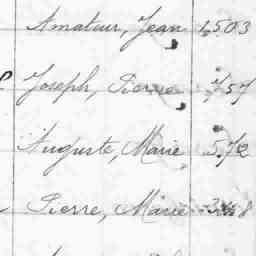 Amateur, Jean 1,503
Joseph, Pierre 757
Auguste, Marie 572
Pierre, Marie